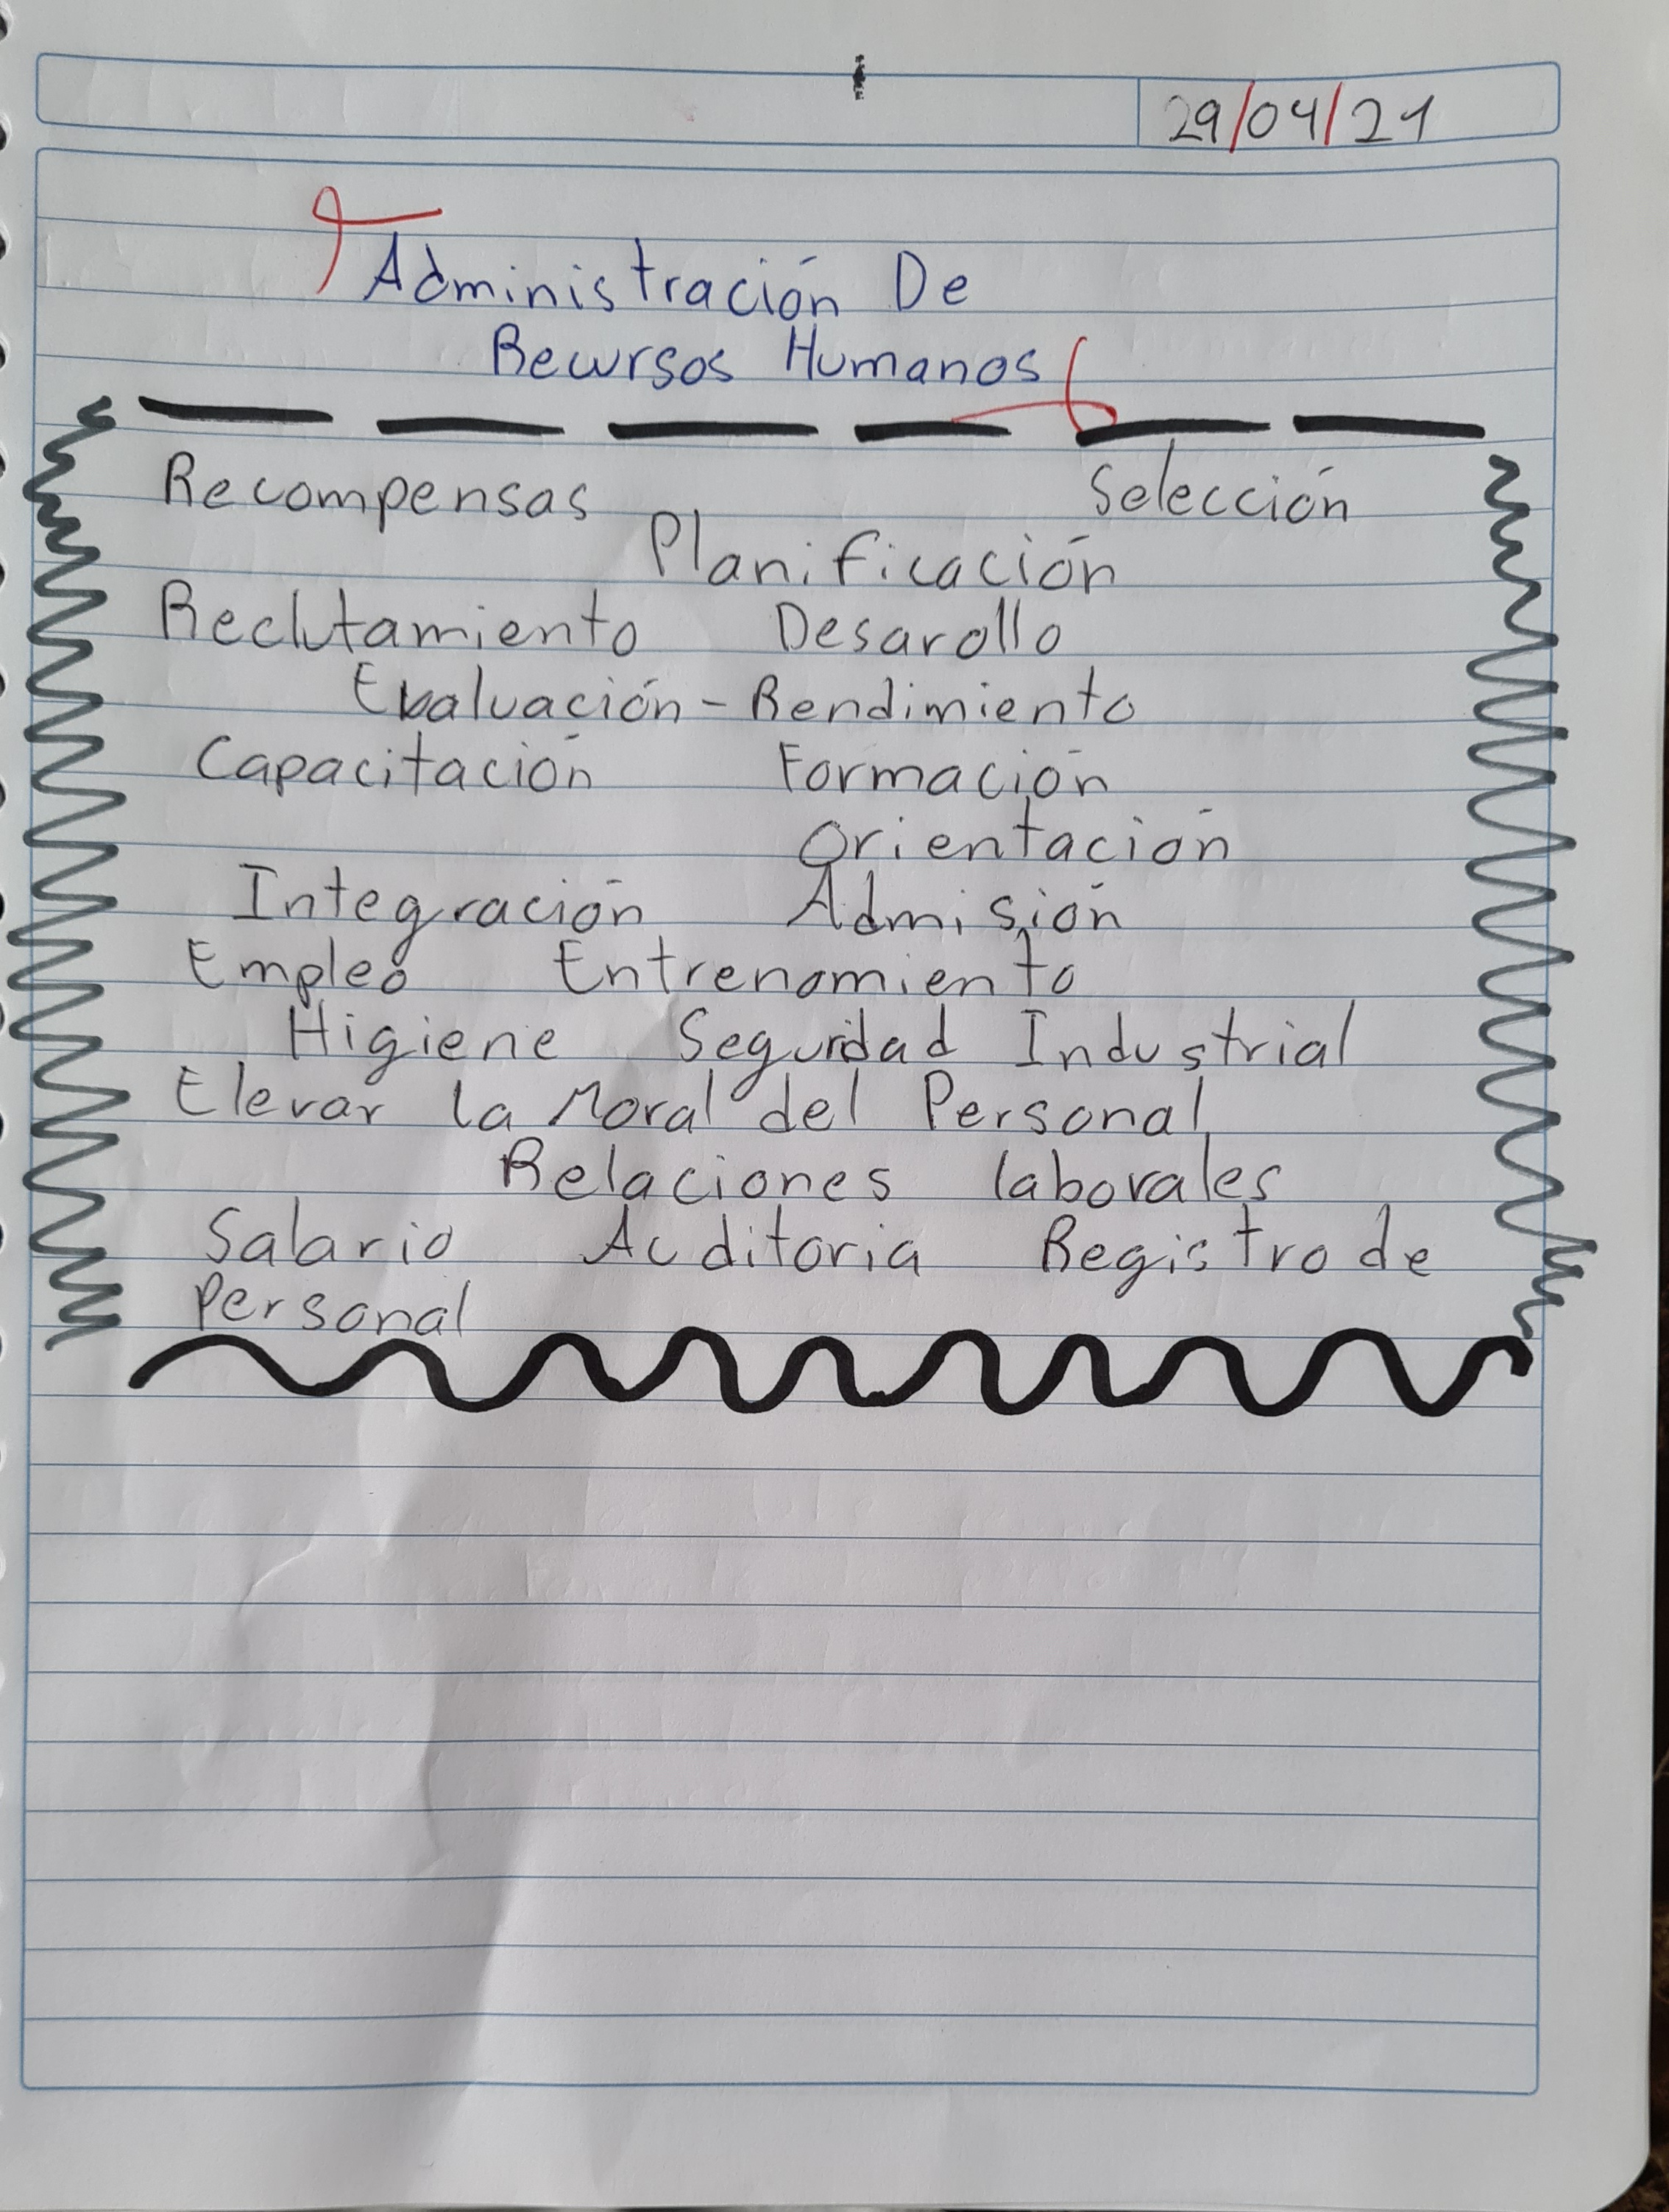 29/04/21
Administración De
Recursos Humanos
Recompensas Selección
Planificación
Reclutamiento Desarollo
Evaluación - Rendimiento
Capacitación Formación
Orientación
Integración Admisión
Empleo Entrenamiento
Higiene Seguridad Industrial
Elevar la Moral del Personal
Relaciones laborales
Salario Auditoria Registro de
Personal